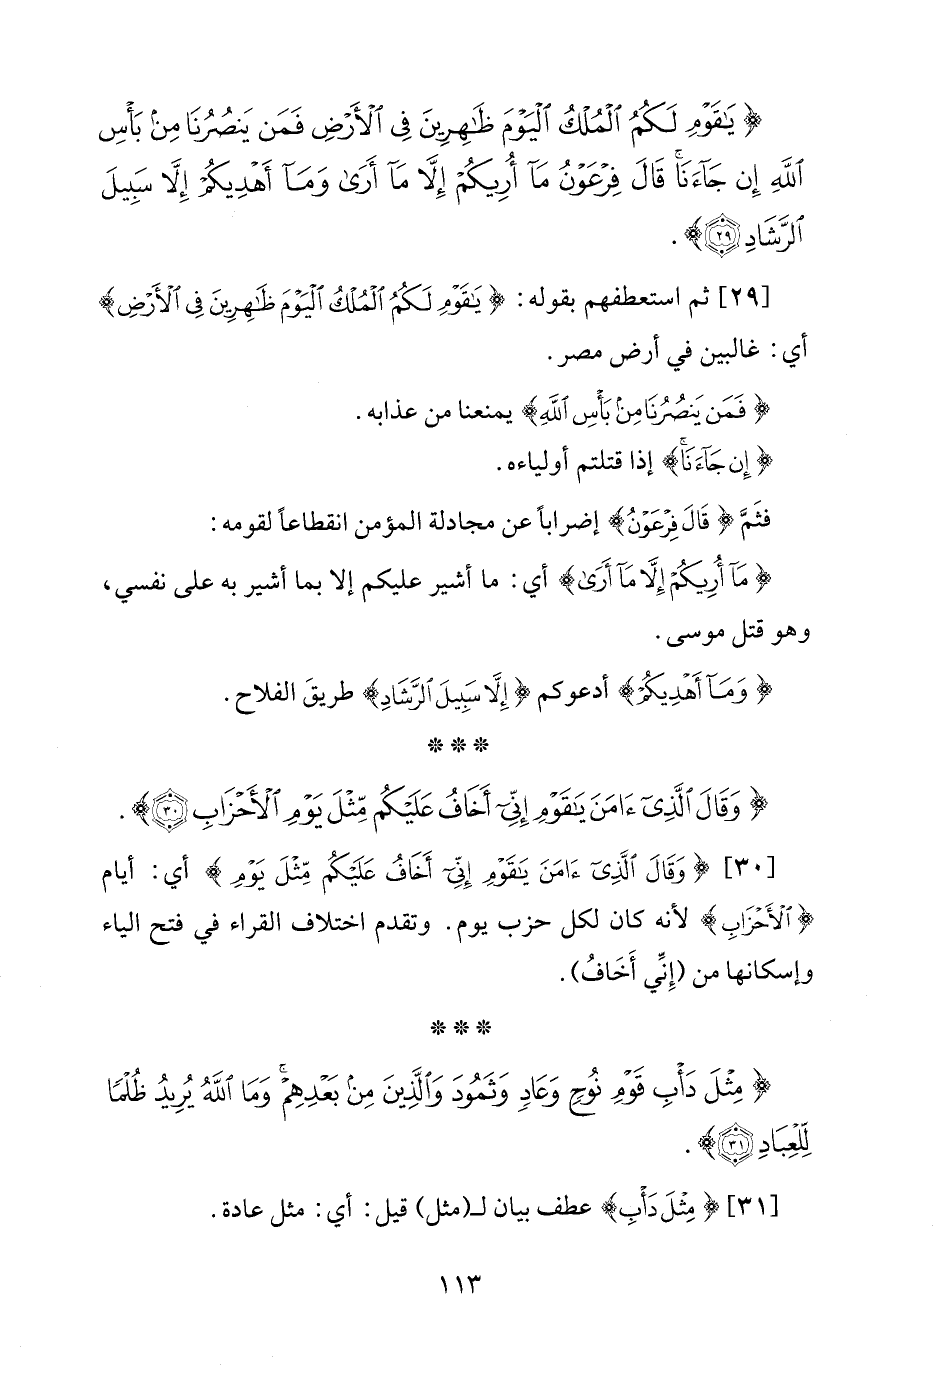 ﴿ يَٰقَوْمِ لَكُمُ ٱلْمُلْكُ ٱلْيَوْمَ ظَٰهِرِينَ فِى ٱلْأَرْضِ فَمَن يَنصُرُنَا مِنۢ بَأْسِ
ٱللَّهِ إِن جَآءَنَا ۚ قَالَ فِرْعَوْنُ مَآ أُرِيكُمْ إِلَّا مَآ أَرَىٰ وَمَآ أَهْدِيكُمْ إِلَّا سَبِيلَ
ٱلرَّشَادِ ۝٢٩ ﴾ .
[٢٩] ثم استعطفهم بقوله: ﴿ يَٰقَوْمِ لَكُمُ ٱلْمُلْكُ ٱلْيَوْمَ ظَٰهِرِينَ فِى ٱلْأَرْضِ ﴾
أي: غالبين في أرض مصر.
﴿ فَمَن يَنصُرُنَا مِنۢ بَأْسِ ٱللَّهِ ﴾ يمنعنا من عذابه.
﴿ إِن جَآءَنَا ۚ ﴾ إذا قتلتم أولياءه.
فثَمَّ ﴿ قَالَ فِرْعَوْنُ ﴾ إضراباً عن مجادلة المؤمن انقطاعاً لقومه:
﴿ مَآ أُرِيكُمْ إِلَّا مَآ أَرَىٰ ﴾ أي: ما أشير عليكم إلا بما أشير به على نفسي،
وهو قتل موسى.
﴿ وَمَآ أَهْدِيكُمْ ﴾ أدعوكم ﴿ إِلَّا سَبِيلَ ٱلرَّشَادِ ﴾ طريقَ الفلاح.
* * *
﴿ وَقَالَ ٱلَّذِىٓ ءَامَنَ يَٰقَوْمِ إِنِّىٓ أَخَافُ عَلَيْكُم مِّثْلَ يَوْمِ ٱلْأَحْزَابِ ۝٣٠ ﴾ .
[٣٠] ﴿ وَقَالَ ٱلَّذِىٓ ءَامَنَ يَٰقَوْمِ إِنِّىٓ أَخَافُ عَلَيْكُم مِّثْلَ يَوْمِ ﴾ أي: أيام
﴿ ٱلْأَحْزَابِ ﴾ لأنه كان لكل حزب يوم. وتقدم اختلاف القراء في فتح الياء
وإسكانها من (إِنِّي أَخَافُ).
* * *
﴿ مِثْلَ دَأْبِ قَوْمِ نُوحٍ وَعَادٍ وَثَمُودَ وَٱلَّذِينَ مِنۢ بَعْدِهِمْ ۚ وَمَا ٱللَّهُ يُرِيدُ ظُلْمًا
لِّلْعِبَادِ ۝٣١ ﴾ .
[٣١] ﴿ مِثْلَ دَأْبِ ﴾ عطف بيان لـ(مثل) قيل: أي: مثل عادة.
١١٣